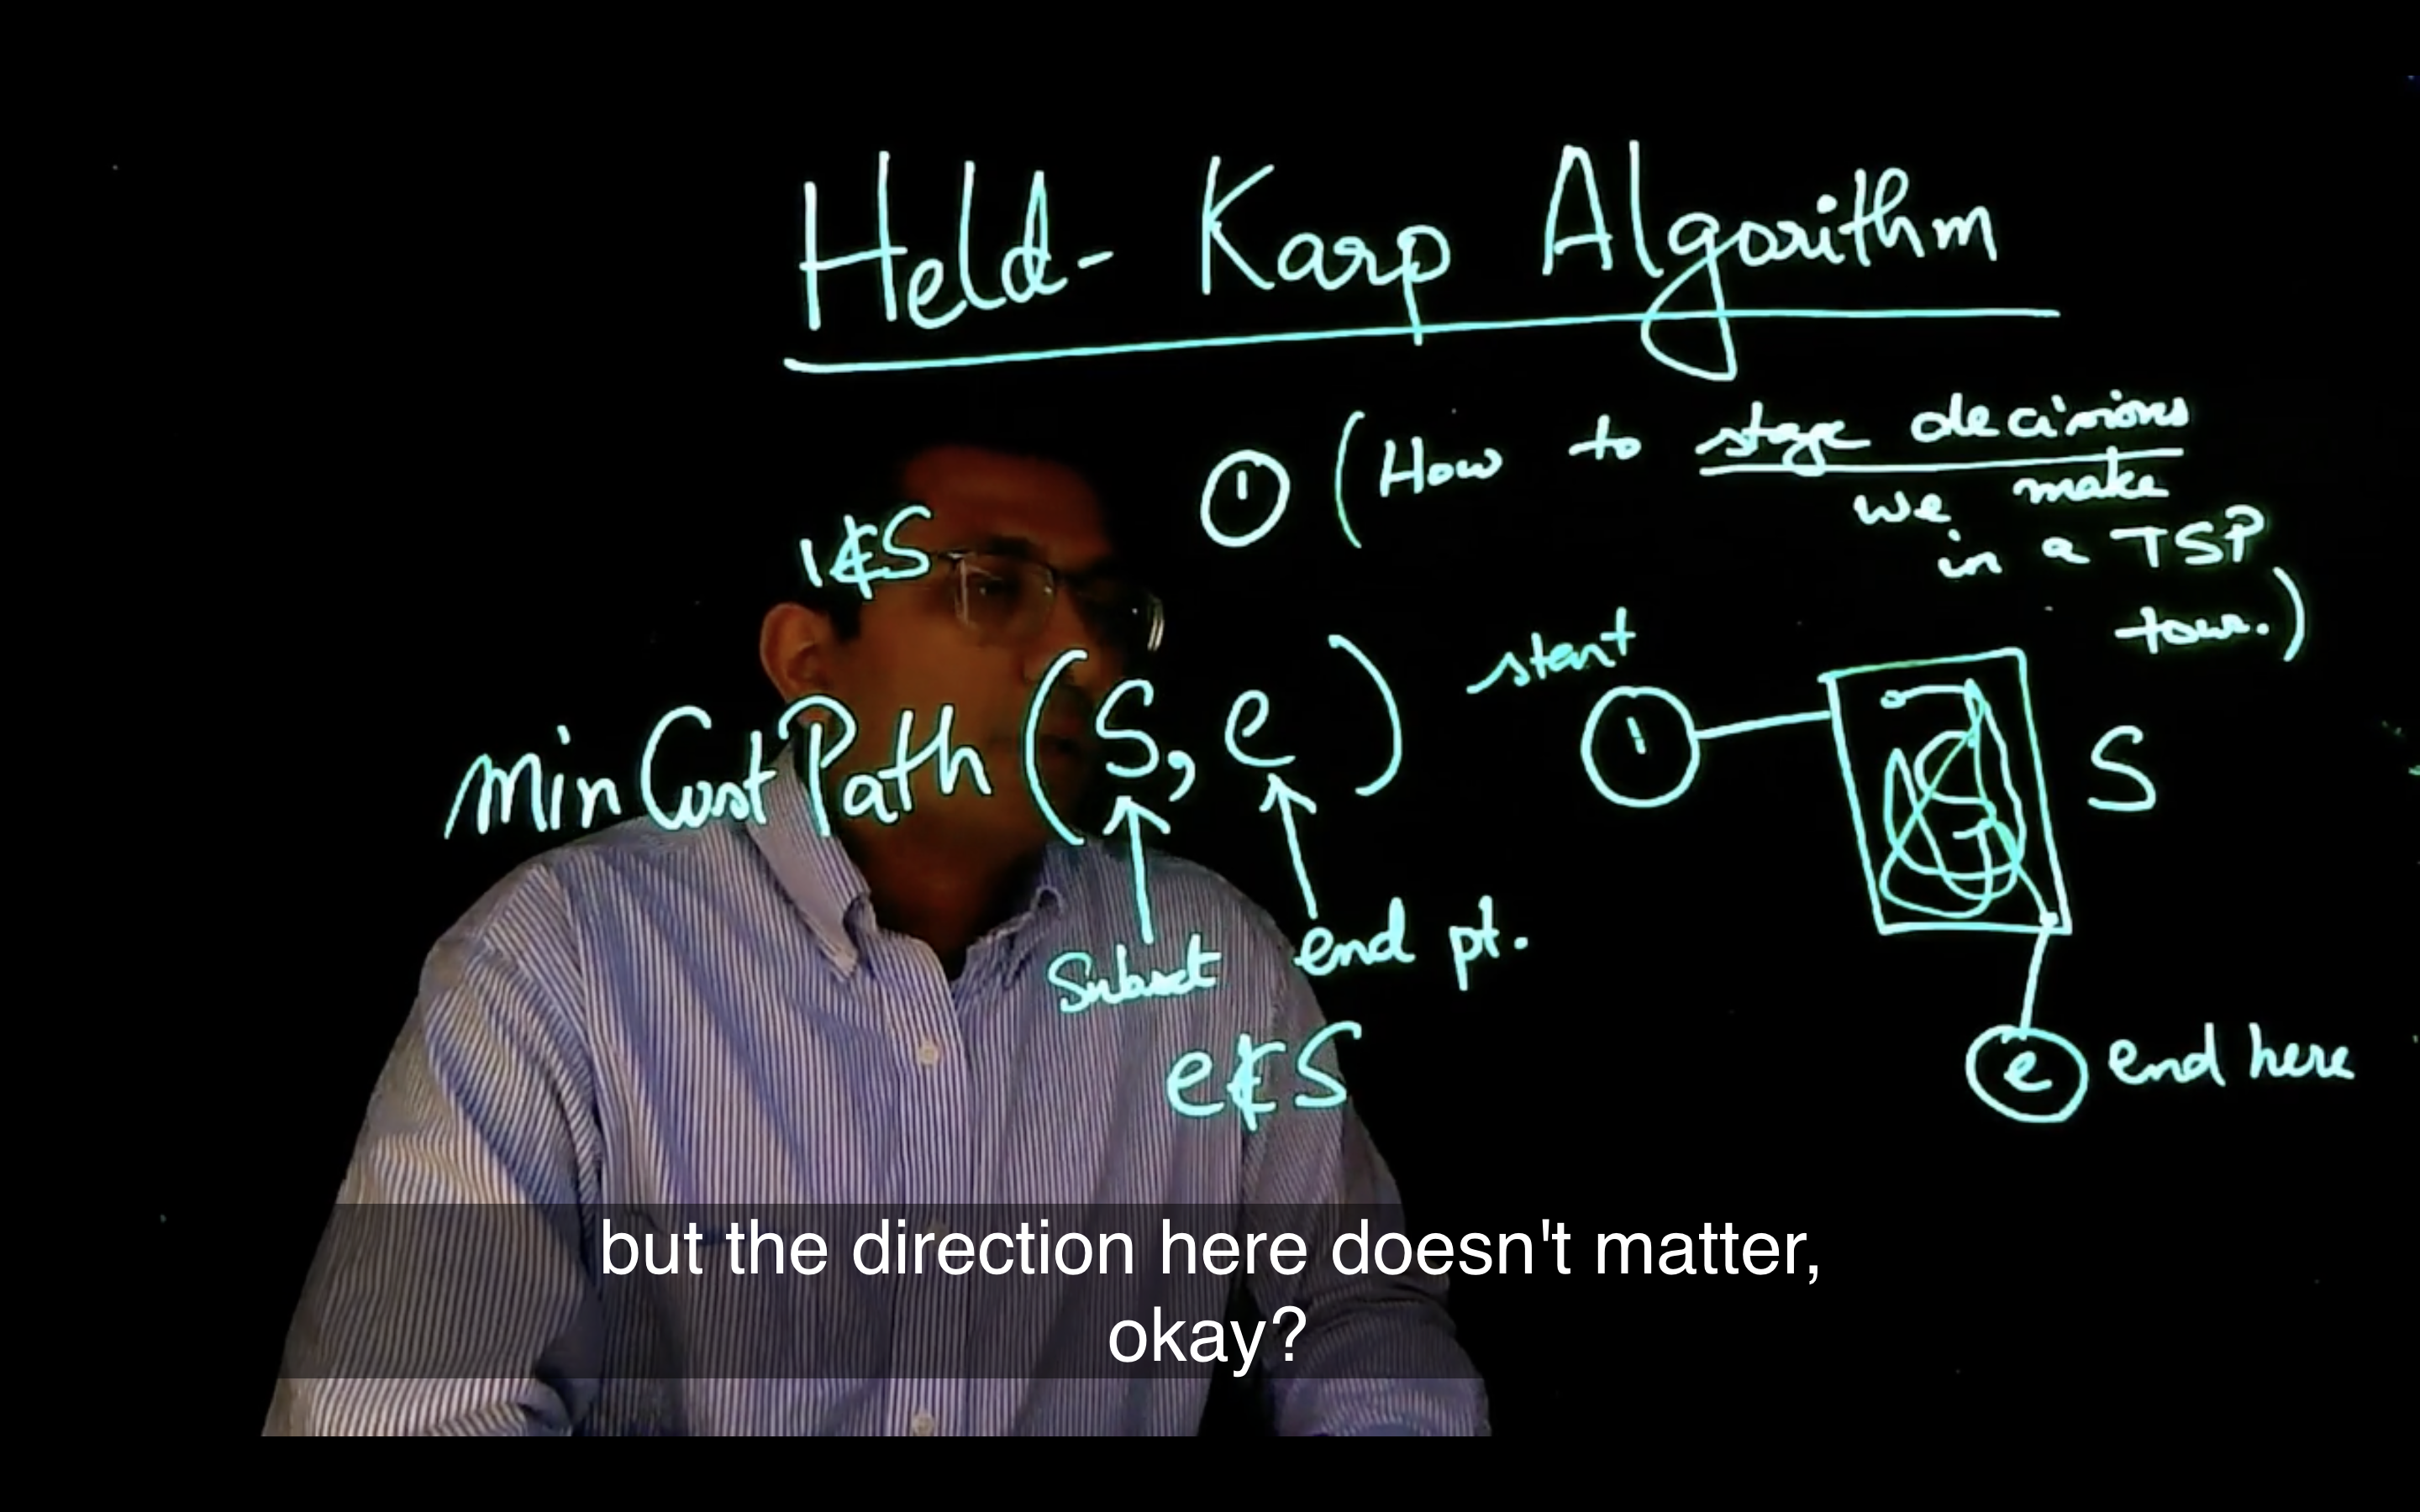 Held-Karp Algorithm
① (How to stage decisions
we make
in a TSP
tour.)
1∉S
start
minCostPath (S, e)
1
S
Subset
end pt.
e∉S
e
end here
but the direction here doesn't matter,
okay?